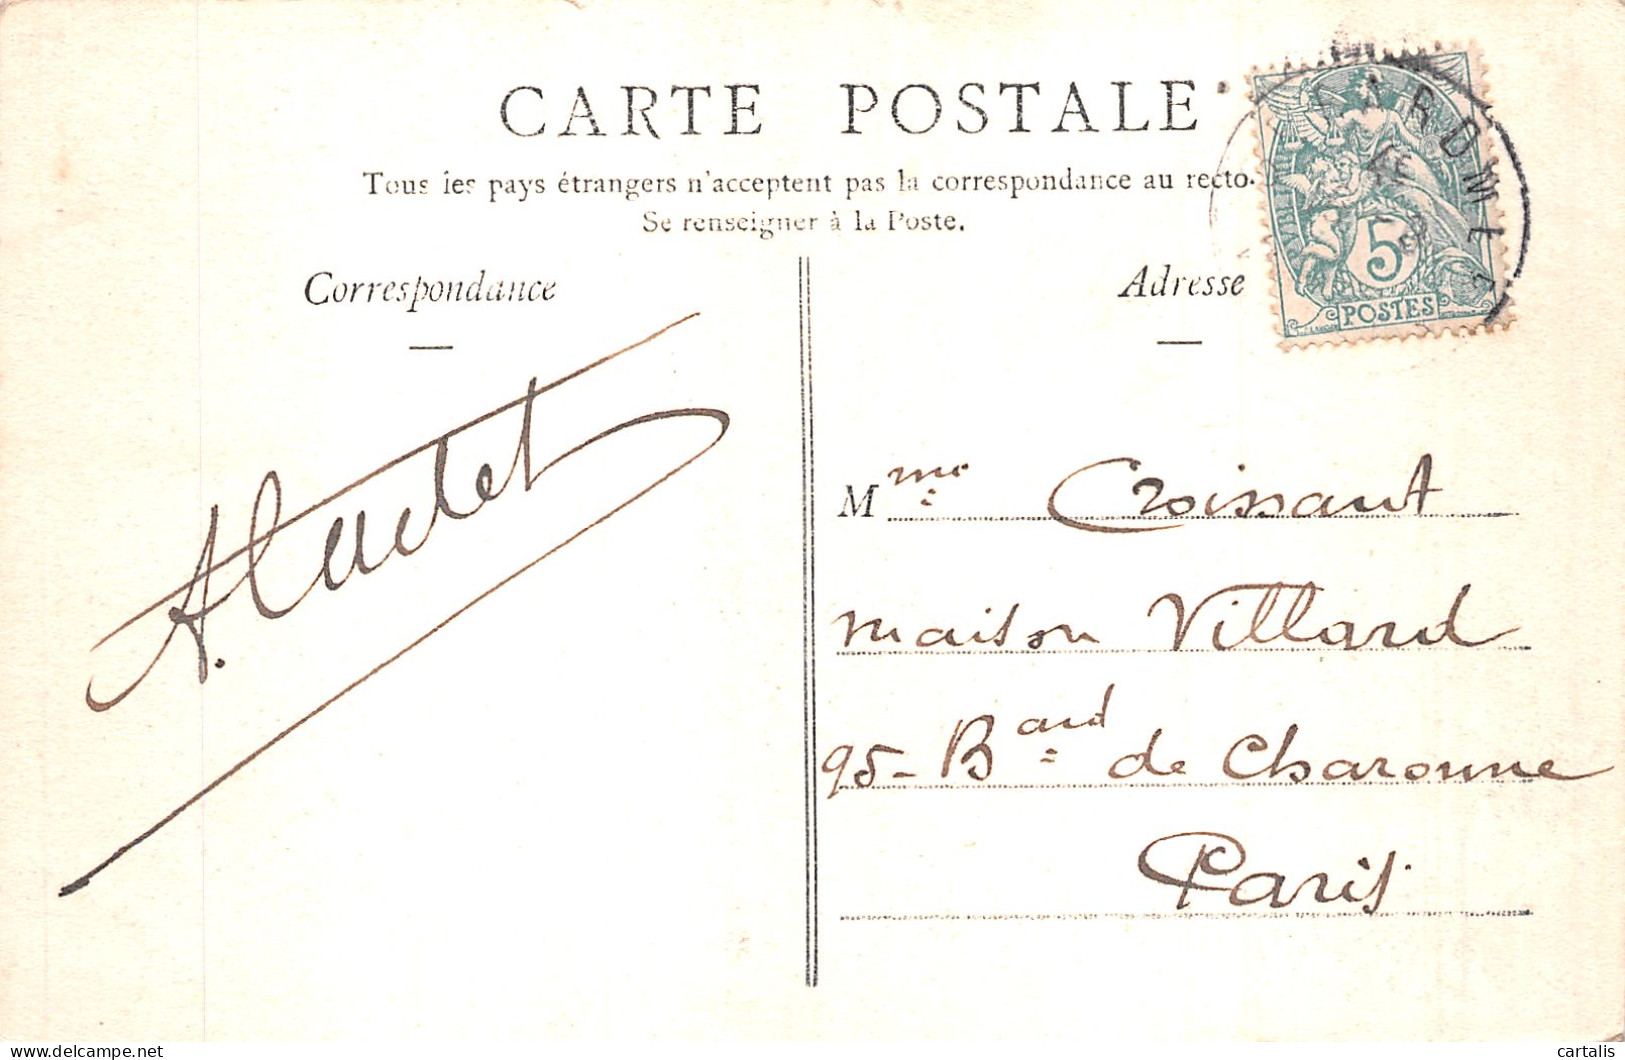 CARTE POSTALE
Tous les pays étrangers n'acceptent pas la correspondance au recto.
Se renseigner à la Poste.
Correspondance
Adresse
5
POSTES
Mme Croissant
maison Villard
95 - Bard de Charonne
Paris
cartalis